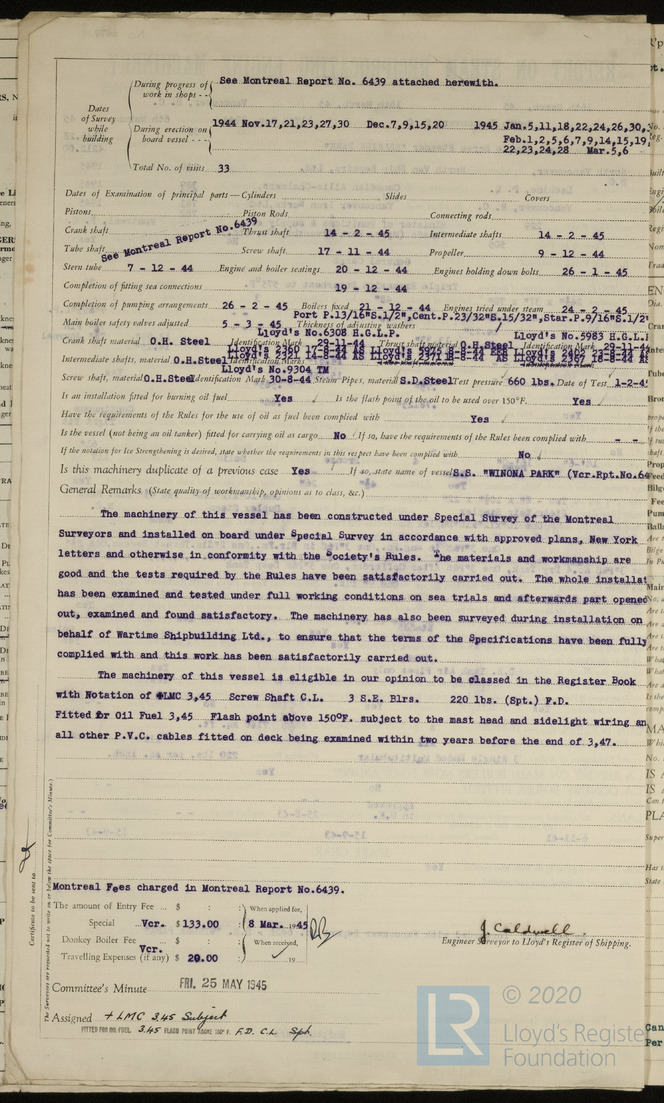 During progress of work in shops - - See Montreal Report No. 6439 attached herewith.
Dates of Survey while building
During erection on board vessel - - - 1944 Nov.17,21,23,27,30 Dec.7,9,15,20 1945 Jan.5,11,18,22,24,26,30,
Feb.1,2,5,6,7,9,14,15,19,
22,23,24,28 Mar.5,6
Total No. of visits 33
Dates of Examination of principal parts—Cylinders Slides Covers
Pistons Piston Rods Connecting rods
Crank shaft Thrust shaft 14 - 2 - 45 Intermediate shafts 14 - 2 - 45
See Montreal Report No.6439
Tube shaft Screw shaft 17 - 11 - 44 Propeller 9 - 12 - 44
Stern tube 7 - 12 - 44 Engine and boiler seatings 20 - 12 - 44 Engines holding down bolts 26 - 1 - 45
Completion of fitting sea connections 19 - 12 - 44
Completion of pumping arrangements 26 - 2 - 45 Boilers fixed 21 - 12 - 44 Engines tried under steam 24 - 2 - 45
Port P.13/16"S.1/2",Cent.P.23/32"S.15/32",Star.P.9/16"S.1/2"
Main boiler safety valves adjusted 5 - 3 - 45 Thickness of adjusting washers
Lloyd's No.6308 H.G.L.P. Lloyd's No.5983 H.G.L.
Crank shaft material O.H. Steel Identification Mark 29-11-44 Thrust shaft material O.H.Steel Identification Mark 29-11-4
Intermediate shafts, material O.H.Steel Identification Marks
Lloyd's No.9304 TM
Screw shaft, material O.H.Steel Identification Mark 30-8-44 Steam Pipes, material S.D.Steel Test pressure 660 lbs. Date of Test 1-2-45
Is an installation fitted for burning oil fuel Yes Is the flash point of the oil to be used over 150°F. Yes
Have the requirements of the Rules for the use of oil as fuel been complied with Yes
Is the vessel (not being an oil tanker) fitted for carrying oil as cargo No If so, have the requirements of the Rules been complied with - -
If the notation for Ice Strengthening is desired, state whether the requirements in this respect have been complied with No
Is this machinery duplicate of a previous case Yes If so, state name of vessel S.S. "WINONA PARK" (Vcr.Rpt.No.64
General Remarks (State quality of workmanship, opinions as to class, &c.)
The machinery of this vessel has been constructed under Special Survey of the Montreal
Surveyors and installed on board under Special Survey in accordance with approved plans, New York
letters and otherwise in conformity with the Society's Rules. The materials and workmanship are
good and the tests required by the Rules have been satisfactorily carried out. The whole installat
has been examined and tested under full working conditions on sea trials and afterwards part opened
out, examined and found satisfactory. The machinery has also been surveyed during installation on
behalf of Wartime Shipbuilding Ltd., to ensure that the terms of the Specifications have been fully
complied with and this work has been satisfactorily carried out.
The machinery of this vessel is eligible in our opinion to be classed in the Register Book
with Notation of +LMC 3,45 Screw Shaft C.L. 3 S.E. Blrs. 220 lbs. (Spt.) F.D.
Fitted for Oil Fuel 3,45 Flash point above 150°F. subject to the mast head and sidelight wiring an
all other P.V.C. cables fitted on deck being examined within two years before the end of 3,47.
Certificate to be sent to
(The Surveyors are requested not to write on or below the space for Committee's Minute.)
Montreal Fees charged in Montreal Report No.6439.
The amount of Entry Fee ... $ : When applied for,
Special ... Vcr. $133.00 : 8 Mar. 1945
Donkey Boiler Fee ... $ : When received,
Travelling Expenses (if any) Vcr. $ 20.00 : 19
J. Caldwell.
Engineer Surveyor to Lloyd's Register of Shipping.
Committee's Minute FRI. 25 MAY 1945
Assigned + LMC 3.45 Subject
FITTED FOR OIL FUEL. 3.45 FLASH POINT ABOVE 150° F. F.D. C.L. Spt.
LR © 2020
Lloyd's Register
Foundation